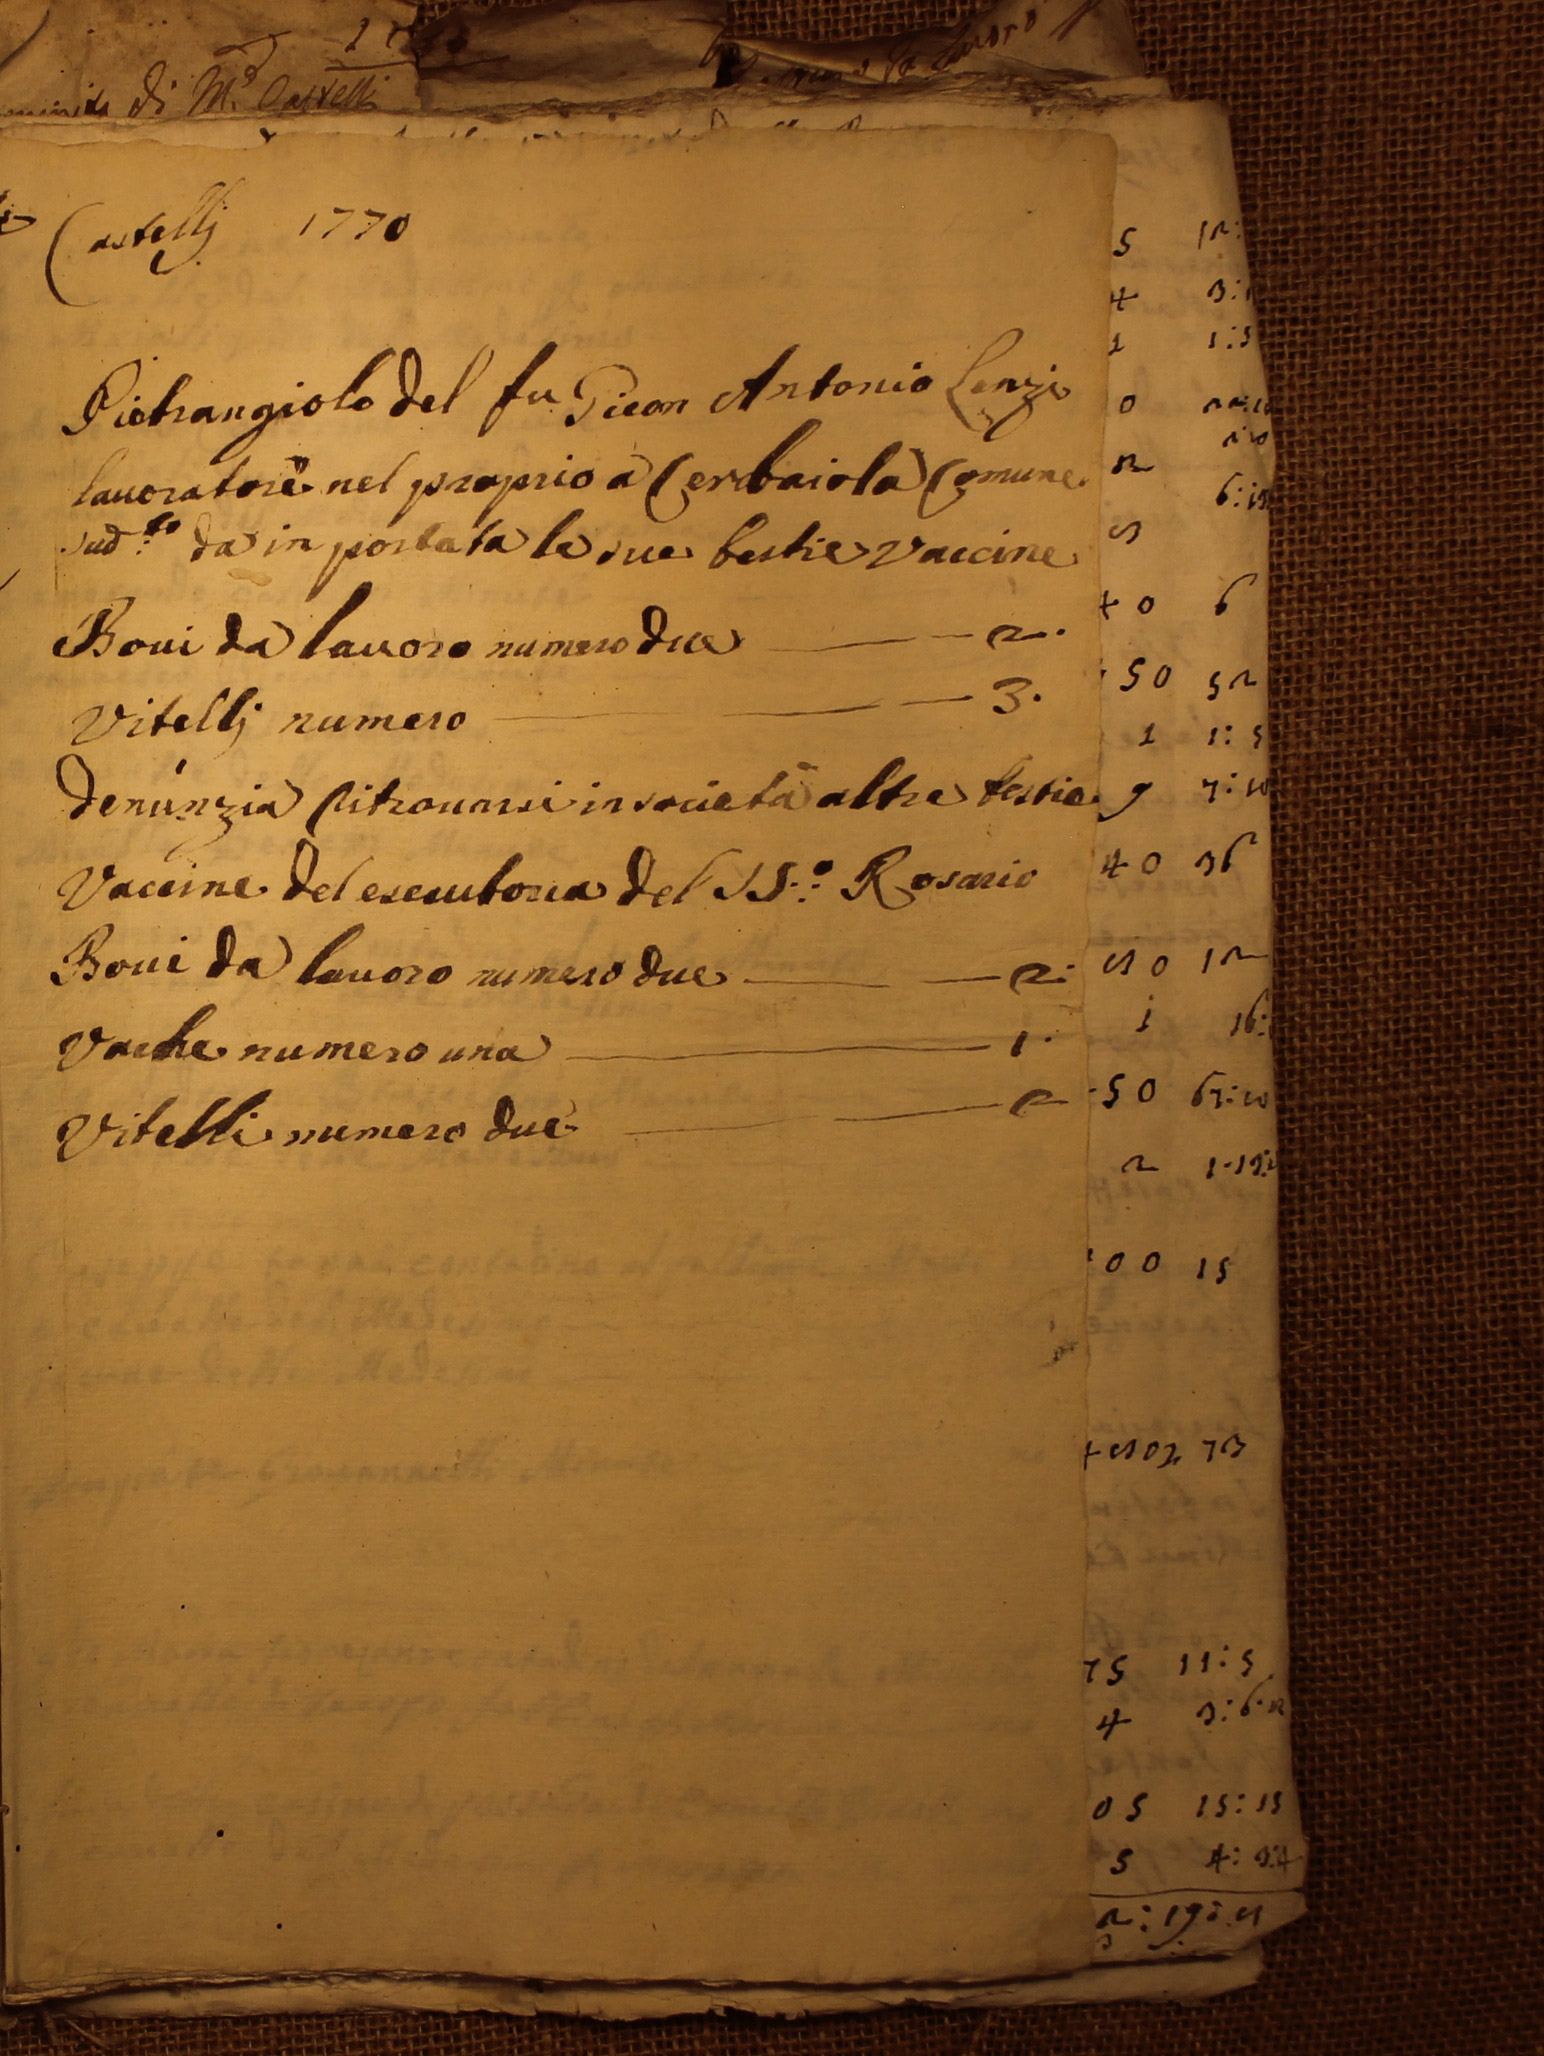 di M.ª Castelli
da lavoro
Castellj 1770
Pietrangiolo del fu Pieran Antonio Lenzi
lavoratore nel proprio à Cerbaiola Comune
sud.to da in portata le sue bestie vaccine
Boui da lauoro numero due 2.
Vitellj numero 3.
denúnzia ritrouarsi in società altre bestie
Vaccine del esecutoria del SS.º Rosario
Boui da lauoro numero due 2:
Vache numero una 1.
Vitelli numero due 2
5 12:
4 3:
1 1:5
0
2
6:15
5
0 6
50 52
1 1:5
9 7:10
40 36
50 12
1 16:
50 67:10
2
00 15
73
75 11:5
4 3:6:2
05 15:15
5 4:3:4
2:19:5